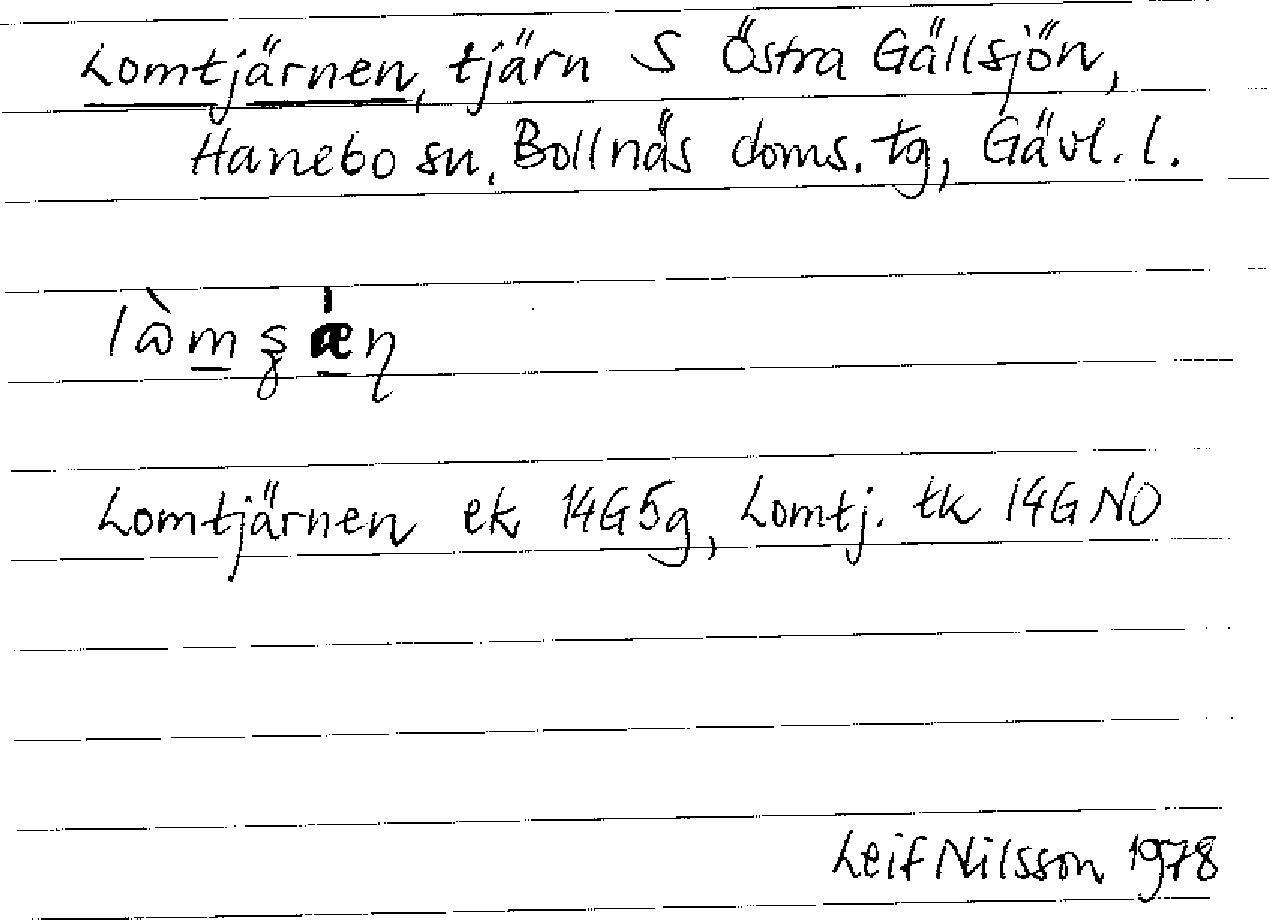 Lomtjärnen, tjärn S Östra Gällsjön,
Hanebo sn, Bollnäs doms. tg, Gävl. l.
Lomtjärnen ek 14G5g, Lomtj. tk 14G NO
Leif Nilsson 1978